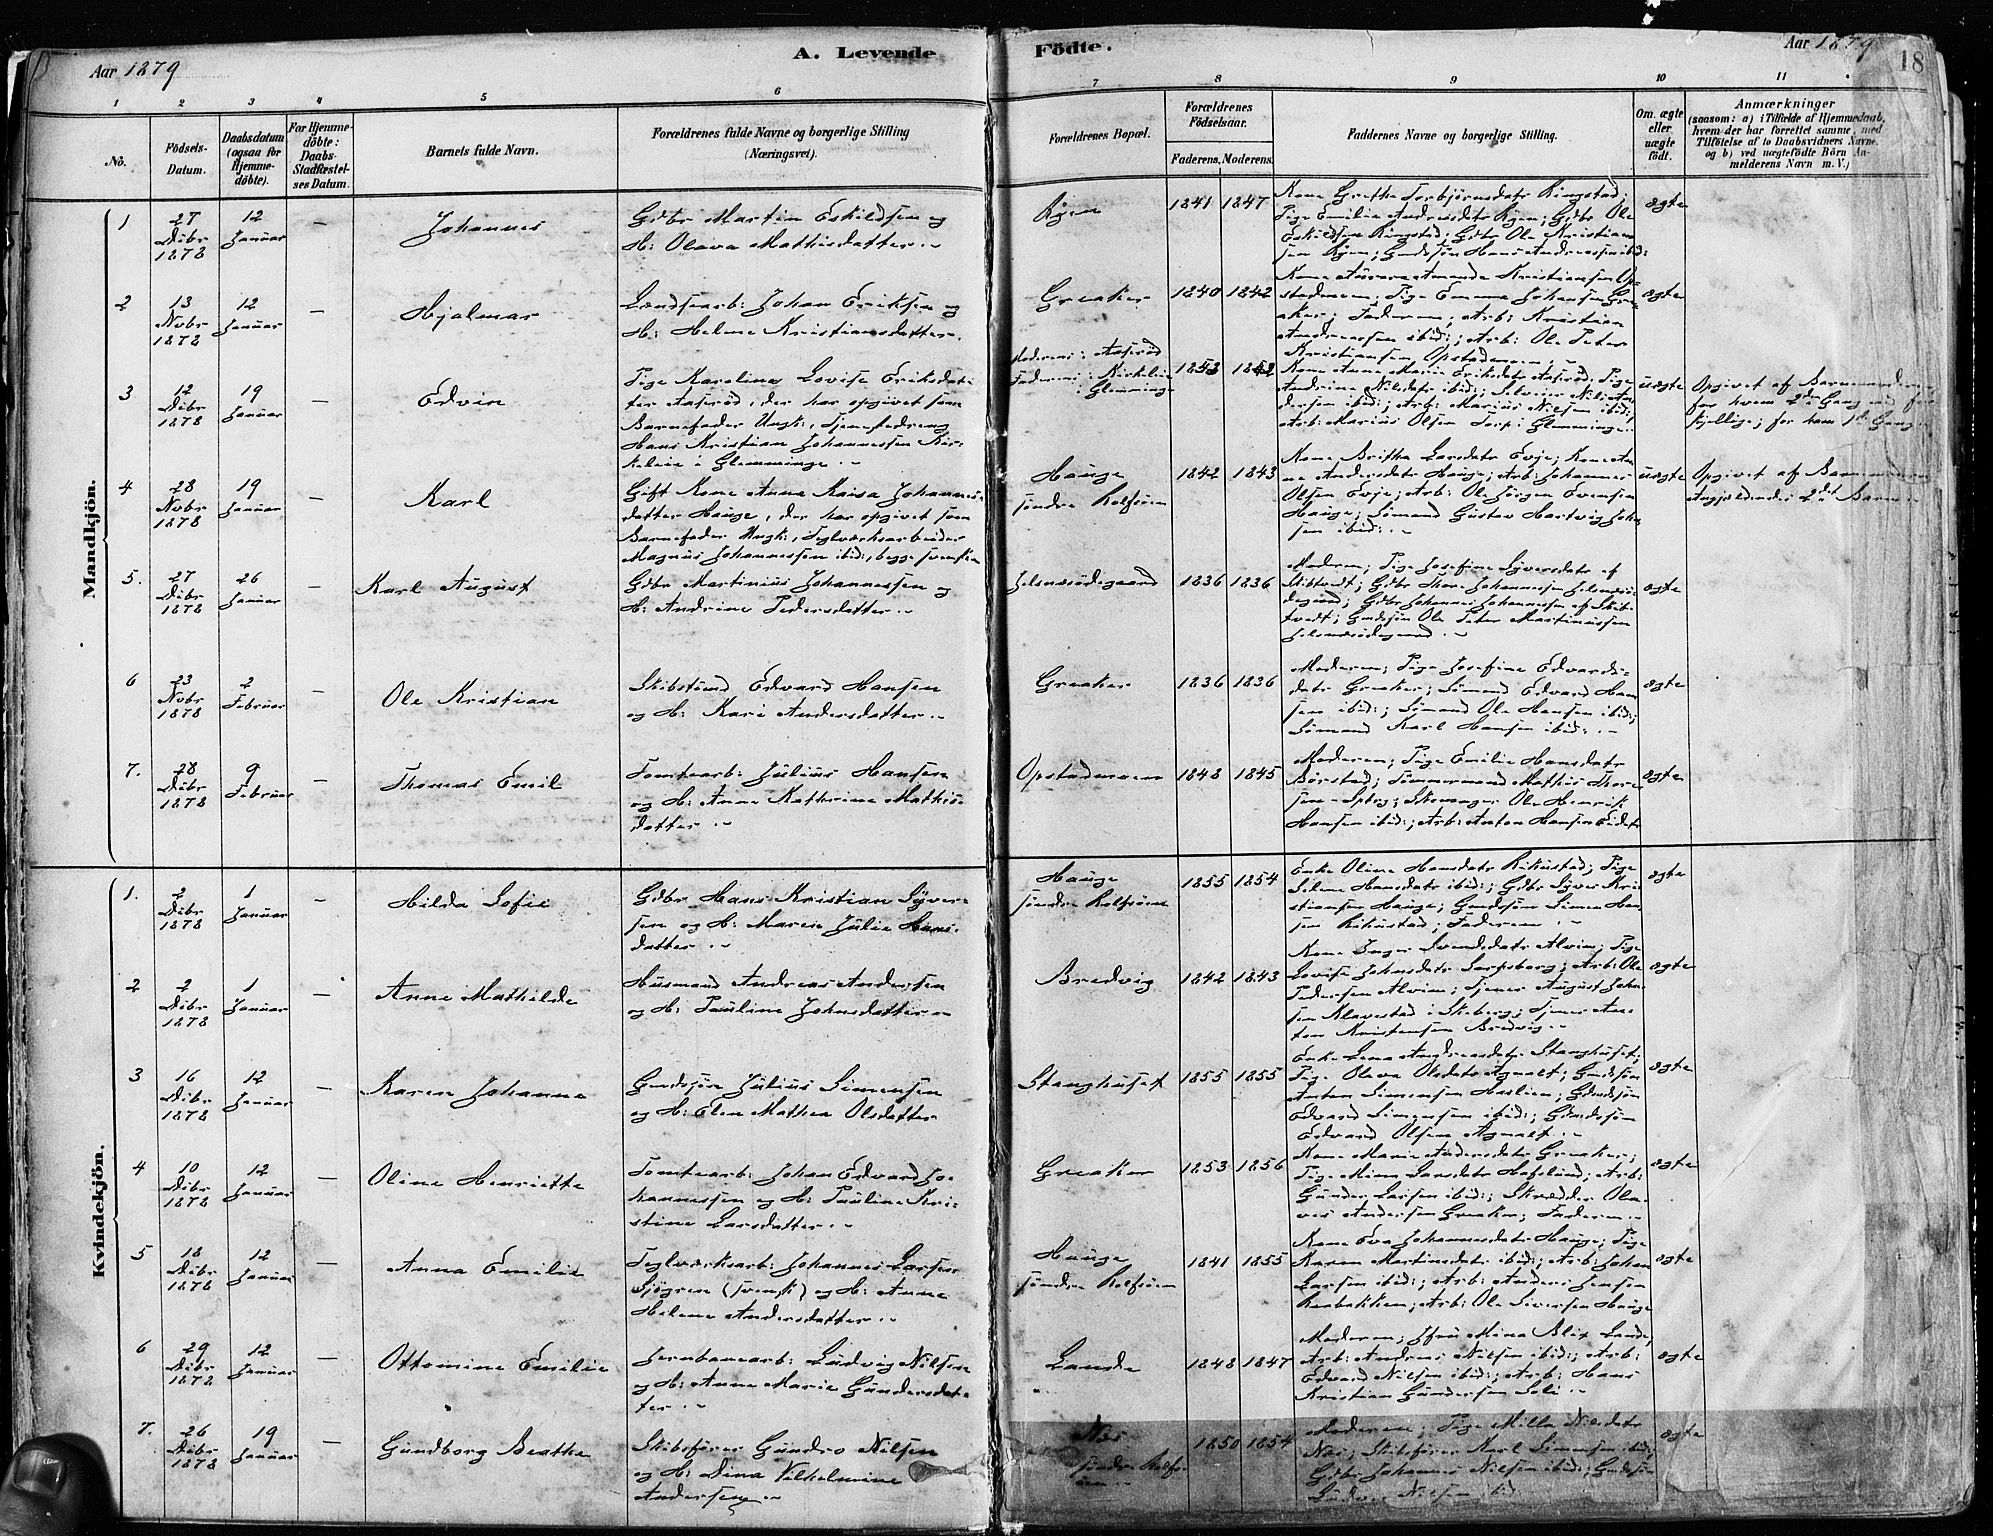 Aar 1879
A. Levende
Födte.
Aar 1879
18
1 2 3 4 5 6 7 8 9 10 11
No.
Födsels-
Datum.
Daabsdatum
(ogsaa for
Hjemme-
döbte).
For Hjemme-
döbte:
Daabs-
Stadfæstel-
ses Datum.
Barnets fulde Navn.
Forældrenes fulde Navne og borgerlige Stilling
(Næringsvei).
Forældrenes Bopæl.
Forældrenes
Födselsaar.
Faderens. Moderens.
Faddernes Navne og borgerlige Stilling.
Om ægte
eller
uægte
födt.
Anmærkninger
(saasom: a) i Tilfælde af Hjemmedaab,
hvem der har forrettet samme, med
Tilföielse af to Daabsvidners Navne.
og b) ved uægtefödte Börn An-
melderens Navn m. V.)
Mandkjön.
1
27
Dcbr
1878
12
Januar
Johannes
Gdbr Martin Eskildsen og
H: Olava Mathisdatter
Ryen
1841 1847
Kone Grethe Torbjørnsdatr Ringstad;
Pige Emilie Andreasdatr Ryen; Gdbr Ole
Eskildsen Ringstad; Gdbr Ole Kristian
sen Ryen; Gmdssøn Hans Andreassen ibid:
ægte
2
13
Nvbr
1878
12
Januar
Hjalmar
Landsearb: Johan Eriksen og
H: Helene Kristiansdatter
Greaker
1840 1842
Kone Amanda Kristiansen Op-
stadmoen; Pige Emma Johansen Gre-
aker; Faderen; Arb: Kristian
Andreassen ibid:; Arb: Ole Peter
Kristiansen Opstadmoen
ægte
3
12
Dcbr
1878
19
Januar
Edvin
Pige Karoline Lovise Eriksdat-
ter Aasrød, der har opgivet som
Barnefader Ungk:, Tjenestedreng
Hans Kristian Johannessen Kir-
keleie i Glemminge
Moderens: Aasrød
Faderens: Kirkeleie
i Glemminge
1853
Kone Anne Marie Eriksdatr Aasrød; Pige
Andrine Nilsdatr ibid:; Selveier Nils An-
dersen ibid:; Arb: Marius Nilsen ibid:;
Arb: Marius Olsen Torp i Glemminge
uægte
Opgivet af Barnemoderen
for hvem 2den Gang
; for ham 1ste Gang
4
28
Nvbr
1878
19
Januar
Karl
Gift Kone Anne Kaisa Johannes-
datter Hauge, der har opgivet som
Barnefader Ungk:, Teglværksarbeider
Magnus Johannessen ibid:, begge svenske
Hauge
søndre Rolfsøen
1842 1843
Kone Britha Larsdatr Evje; Kone An-
ne Andersdatr Hauge; Arb: Johannes
Olsen Evje; Arb: Ole Jörgen Evensen
Hauge; Sømand Gustav Hartvig Johan
sen ibid:
uægte
Opgivet af Barnemoderen
Angjældendes 2det Barn
5.
27
Dcbr
1878
26
Januar
Karl August
Gdbr Martinius Johannessen og
H: Andrine Pedersdatter
1836 1836
Moderen; Pige Josefine Syversdatr af
Skibtvedt; Gdbr Thore Johannessen
; Gdbr Johannes Johannessen af Skib-
tvedt; Gmdssøn Ole Peter Martiniussen
ægte
6
23
Nvbr
1878
2
Februar
Ole Kristian
Skibstømd Edvard Hansen
og H: Kari Andersdatter
Greaker
1836 1836
Moderen; Pige Josefine Edvards-
datr Greaker; Sømand Edvard Han
sen ibid:; Sømand Ole Hansen ibid:;
Sømand Karl Hansen ibid:
ægte
7.
28
Dcbr
1878
9
Februar
Thomas Emil
Tomtearb: Julius Hansen
og H: Anne Kathrine Mathis-
datter
Opstadmoen
1848 1845
Moderen; Pige Emilie Hansdatr
Børstad; Tømmermand Mathis Thor-
sen ; Skomager Ole Henrik
Hansen ibid:; Arb: Anton Hansen Eidet
ægte
Kvindekjön.
1.
2
Dcbr
1878
1
Januar
Hilda Sofie
Gdbr Hans Kristian Syver-
sen og H: Maren Julie Hans-
datter
Hauge
søndre Rolfsøen
1855 1854
Enke Oline Hansdatr Rikustad; Pige
Hansdatr ibid:; Gdbr Syver Kri-
stiansen Hauge; Gmdssøn Simen Han-
sen Rikustad; Faderen
ægte
2
2
Dcbr
1878
1
Januar
Anne Mathilde
Husmand Andreas Andersen
og H: Pauline Johnsdatter
Bredvig
1842 1843
Kone Inger Svendsdatr Alvim; Pige
Lovise Johnsdatr Sarpsborg; Arb: Ole
Pedersen Alvim; Tjener August Johan-
sen Klavestad i Skeberg; Tjener An-
ton Kristensen Bredvig
ægte
3
16
Dcbr
1878
12
Januar
Karen Johanne
Gmdssøn Julius Simensen
og H: Elen Mathea Olsdatter
Stanghuset
1855 1855
Enke Lena Andreasdatr Stanghuset;
Pige Oleva Olsdatr Agnalt; Gmdssøn
Anton Simensen Haslien; Gmdssøn
Edvard Simensen ibid:; Gmdssøn
Edvard Olsen Agnalt
ægte
4
10
Dcbr
1878
12
Januar
Oline Henriette
Tomtearb: Johan Edvard Jo-
hannessen og H: Pauline Kri-
stine Larsdatter
Greaker
1853 1856
Kone Marie Andersdatr Greaker;
Pige Mina Larsdatr Hafslund; Arb:
Gunder Larsen ibid:; Skrædder Ola-
ves Andersen Greaker; Faderen
ægte
5
18
Dcbr
1878
12
Januar
Anna Emilie
Teglværksarb: Johannes Larsen
Sjögren (svensk) og H: Anne
Helene Andersdatter
Hauge
søndre Rolfsøen
1841 1855
Kone Eva Johannesdatr Hauge; Pige
Karen Martinsdatr ibid:; Arb: Johan
Larsen ibid:; Arb: Anders Jensen
Reabakken; Arb: Ole Seversen Hauge
ægte
6
29
Dcbr
1878
12
Januar
Ottomine Emilie
Jernbanearb: Ludvig Nilsen
og H: Anne Marie Gundersdat-
ter
Lande
1848 1847
Moderen; Jfru Mina Blix Lande,
Arb: Andreas Nilsen ibid:; Arb:
Edvard Nilsen ibid:; Arb: Hans
Kristian Gundersen Soli
ægte
7.
26
Dcbr
1878
19
Januar
Gundborg Beathe
Skibsfører Gundro Nilsen
og H: Dina Vilhelmine
Andersen
Næs
søndre Rolfs-
øen
1850 1854
Moderen; Pige Milla Nilsdatr
Næs; Skibsfører Karl Simensen ibid:;
Gdbr Johannes Nilsen ibid:; Gmdssøn
Ludvig Nilsen ibid
ægte